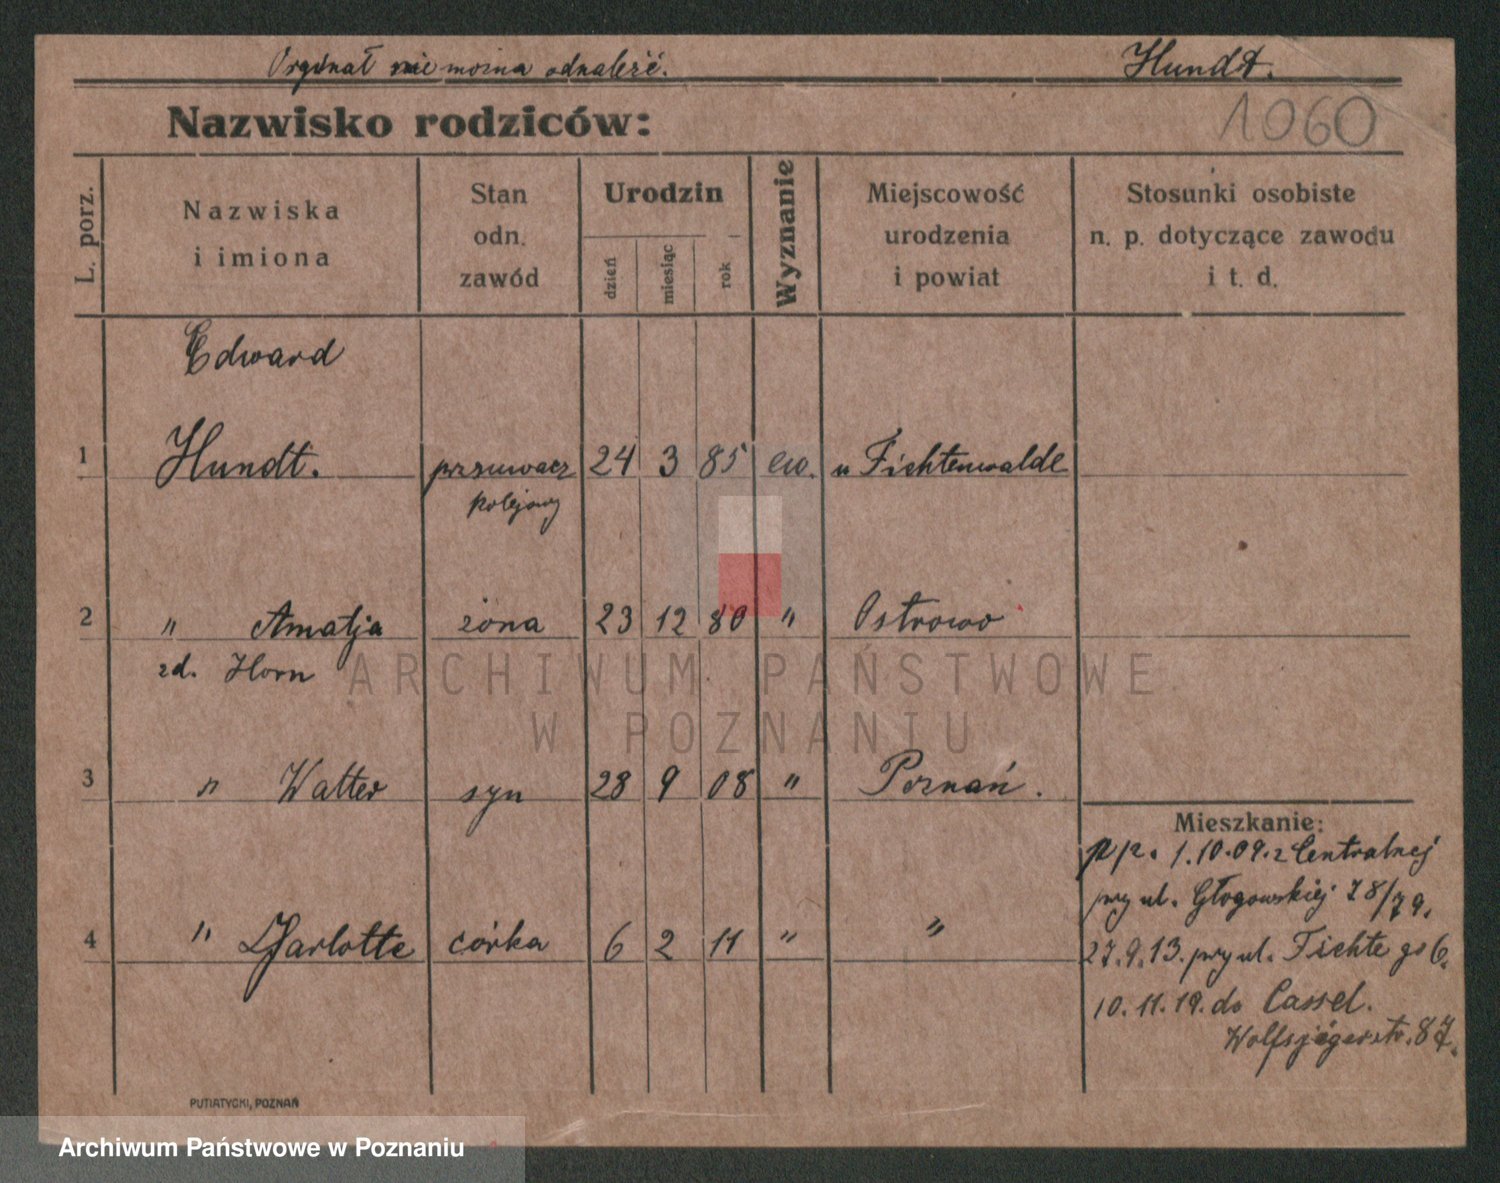 Orginał nie można odnaleźć. Hundt.
1060
Nazwisko rodziców:
L. porz.
Nazwiska
i imiona
Stan
odn.
zawód
Urodzin
dzień miesiąc rok
Wyznanie
Miejscowość
urodzenia
i powiat
Stosunki osobiste
n. p. dotyczące zawodu
i t. d.
Edward
1 Hundt. przsuwacz 24 3 85 ew. Fichtenwalde
kolejowy
2 " Amalja żona 23 12 80 " Ostrowo
zd. Horn
3 " Walter syn 28 9 08 " Poznań.
4 " Charlotte córka 6 2 11 " "
Mieszkanie:
1.10.09. z Centralnej
przy ul. Głogowskiej 78/79.
27.9.13. przy ul. Fichtego 6.
10.11.19. do Cassel.
Wolfsjägerstr. 87.
PUTIATYCKI, POZNAŃ
ARCHIWUM PAŃSTWOWE
W POZNANIU
Archiwum Państwowe w Poznaniu